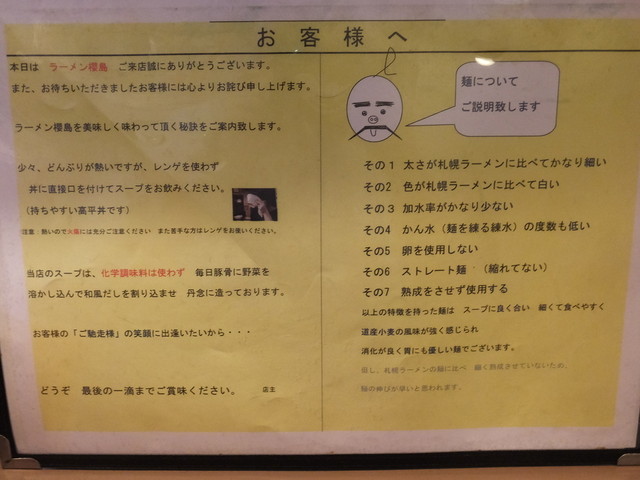 お客様へ
本日は　ラーメン櫻島　ご来店誠にありがとうございます。
また、お待ちいただきましたお客様には心よりお詫び申し上げます。
ラーメン櫻島を美味しく味わって頂く秘訣をご案内致します。
少々、どんぶりが熱いですが、レンゲを使わず
丼に直接口を付けてスープをお飲みください。
（持ちやすい高平丼です）
注意：熱いので火傷には充分ご注意ください　また苦手な方はレンゲをお使いください。
当店のスープは、化学調味料は使わず　毎日豚骨に野菜を
溶かし込んで和風だしを割り込ませ　丹念に造っております。
お客様の「ご馳走様」の笑顔に出逢いたいから・・・
どうぞ　最後の一滴までご賞味ください。　店主
麺について
ご説明致します
その１ 太さが札幌ラーメンに比べてかなり細い
その2 色が札幌ラーメンに比べて白い
その３ 加水率がかなり少ない
その4 かん水（麺を練る練水）の度数も低い
その5 卵を使用しない
その6 ストレート麺　（縮れてない）
その7 熟成をさせず使用する
以上の特徴を持った麺は　スープに良く合い　細くて食べやすく
道産小麦の風味が強く感じられ
消化が良く胃にも優しい麺でございます。
但し、札幌ラーメンの麺に比べ　細く熟成させていないため、
麺の伸びが早いと思われます。